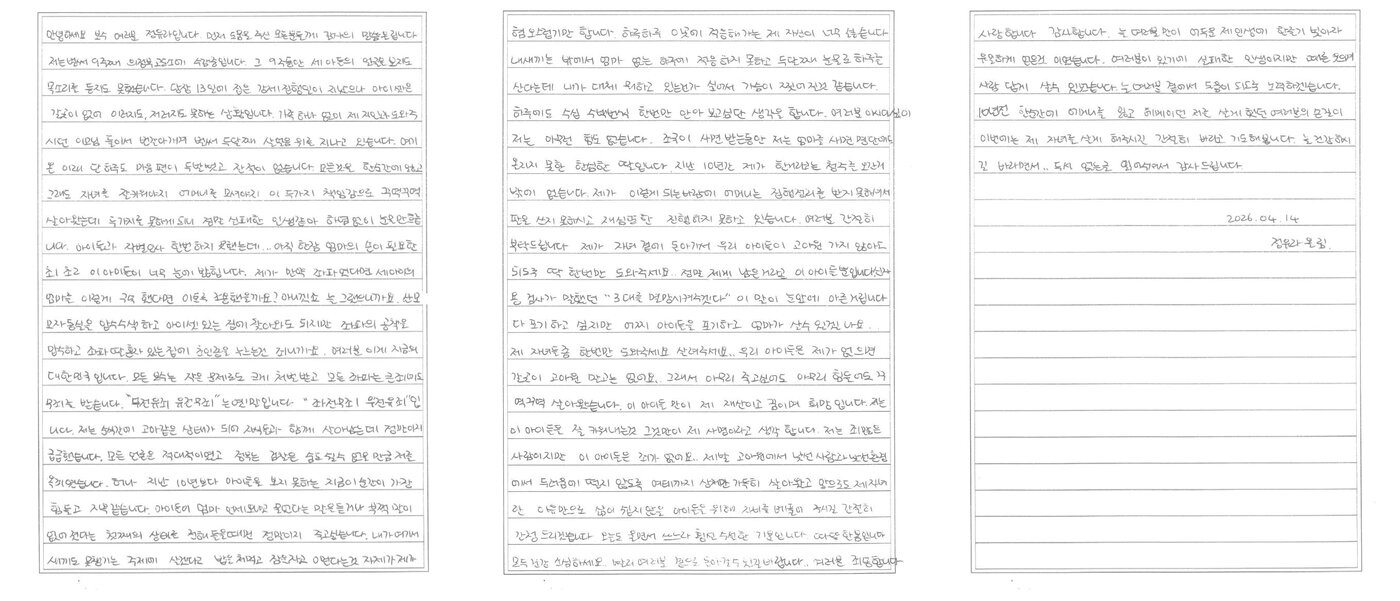 안녕하세요 보수 여러분 정유라입니다. 먼저 도움을 주신 모든분들께 감사의 말씀드립니다
저는벌써 9주째 의정부교도소에 수감중입니다. 그 9주동안 세 아들의 얼굴을 보지도
목소리를 듣지도 못했습니다. 당장 13일이 집은 강제집행일이 지났으나 아이들은
갈곳이 없어 이러지도 저러지도 못하는 상황입니다. 가족 하나 없이 제 지인과 도와주
시던 이모님 둘이서 번갈아가며 벌써 두달째 상역을 위를 지나고 있습니다. 여기
온 이래 단 하루도 마음 편히 두발뻗고 잔적이 없습니다 모든것을 한순간에 잃고
그래도 자녀를 잘키워야지 어머니를 모셔야지 이 두가지 책임감으로 꾸역꾸역
살아왔는데 두가지를 못하게 되니 정말 실패한 인생같아 하염없이 눈물만흐릅
니다. 아이들과 작별인사 한번 하지 못했는데... 아직 한참 엄마의 손이 필요한
최고 이 아이들이 너무 눈에 밟힙니다. 제가 만약 좌파였다면 세아이의
엄마를 이렇게 구속 했다면 이토록 조용했을까요? 아니겠죠 늘 그랬으니까요. 산모
모자동실은 압수수색 하고 아이셋 있는 집에 찾아와도 되지만 좌파의 공작은
압수하고 좌파 딸 혼자 있는집에 초인종을 누르는건 죄니까요. 여러분 이게 지금의
대한민국 입니다. 모든 보수는 작은 문제로도 크게 처벌 받고 모든 좌파는 큰죄에도
무죄를 받습니다. "무전유죄 유전무죄"는 옛말입니다 "좌전무죄 우전유죄"입
니다. 저는 순식간에 고아같은 상태가 되어 자녀들과 함께 살아남는데 정말이지
급급했습니다. 모든 언론은 적대적이었고 경찰은 검찰은 숨도 쉴수 없을 만큼 저를
옥죄였습니다. 허나 지난 10년보다 아이들을 보지 못하는 지금이 순간이 가장
힘들고 지옥같습니다. 아이들이 엄마 언제오냐고 울었다는 말을듣거나 부쩍 말이
없어 졌다는 첫째의 상태를 전해 들을때면 정말이지 죽고싶습니다. 내가 여기서
새끼도 못챙기는 주제에 살겠다고 밥을 처먹고 잠을자고 이런다는것 자체가 제가
혐오스럽기만 합니다. 하루하루 이곳에 적응해가는 제 자신이 너무 싫습니다
내새끼는 밖에서 엄마 없는 하루에 적응하지 못하고 두달째 눈물로 하루를
산다는데 내가 대체 뭐하고 있는건가 싶어서 가슴이 찢어지것 같습니다.
하루에도 수십 수백번씩 한번만 안아 보고싶단 생각을 합니다. 여러분 아시다싶이
저는 아무런 힘도 없습니다. 조국이 사면 받는동안 저는 엄마를 사면 명단에도
올리지 못한 한심한 딸입니다. 지난 10년간 제가 한거라는 청주를 오간거
밖에 없습니다. 제가 이렇게 되는바람에 어머니는 집행정지를 받지 못하셔서
판을 쓰지 못하시고 재심또한 진행하지 못하고 있습니다. 여러분 간절히
부탁드립니다 제가 자녀 곁에 돌아가서 우리 아이들이 고아원 가지 않아도
되도록 딱 한번만 도와주세요.. 정말 제게 남은거라곤 이 아이들 뿐입니다
용 검사가 말했던 "3대를 멸망시켜주겠다" 이 말이 눈앞에 아른거립니다
다 포기 하고 싶지만 어찌 아이들을 포기하고 엄마가 살수 있겠나요..
제 자녀들을 한번만 도와주세요 살려주세요.. 우리 아이들은 제가 없으면
갈곳이 고아원 말고는 없어요.. 그래서 아무리 죽고싶어도 아무리 힘들어도 꾸
역꾸역 살아왔습니다. 이 아이들 만이 제 재산이고 꿈이며 희망 입니다. 저는
이 아이들을 잘 키워내는것 그것만이 제 사명이라고 생각 합니다. 저는 죄많은
사람이지만 이 아이들은 죄가 없어요.. 제발 고아원에서 낯선 사람과 낯선환경
에서 두려움에 떨지 않도록 여태까지 상처만 가득히 살아왔고 앞으로도 제자녀
란 이유만으로 삶이 쉽지않을 아이들을 위해 자비를 베풀어 주시길 간절히
간청 드리겠습니다 오늘도 울면서 쓰느라 횡설수설한 기분입니다
모두 건강 조심하세요. 빨리 여러분 곁으로 돌아갈수 있길 바랍니다.. 여러분 죄송합니다
사랑합니다 감사합니다. 늘 여러분 만이 어두운 제인생에 한줄기 빛이라
우울하게 믿은건 이었습니다. 여러분이 있기에 실패한 인생이지만
사람 답게 살수 있었습니다. 늘 여러분 곁에서 도움이 되도록 노력하겠습니다.
10년전 한순간에 어머니를 잃고 헤메이던 저를 살게 했던 여러분의 온길이
이번에는 제 자녀를 살게 해주시길 간절히 바라고 기도해봅니다. 늘 건강하시
길 바라면서.. 두서 없는글 읽어줘서 감사드립니다.
2026. 04. 14
정유라 올림